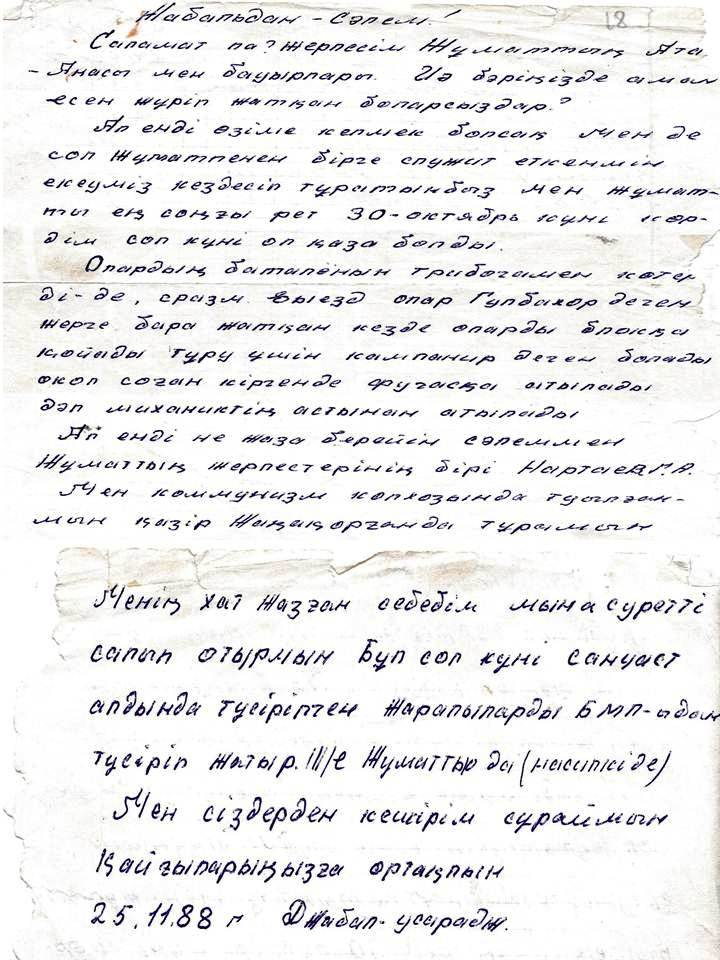 Жабальдан - Сәлем!
18
Саламат па? Жерлесім Жуматтың Ата
- Анасы мен бауырлары. Иә бәріңізде аман
есен жүріп жатқан боларсыздар?
Ал енді өзіме келмек болсақ Мен де
сол Жуматпенен бірге служит еткенмін
екеуміз кездесіп тұратынбыз мен Жумат-
ты ең соңғы рет 30-октябрь күні көр-
дім сол күні ол қаза болды.
Олардың батальёнын тривогамен көтер
ді-де, сразм выезд олар Гулбахор деген
жерге бара жатқан кезде оларды блокқа
қояды тұру үшін кампанир деген болады
окоп соған кіргенде фугасқа атылады
дәл миханиктің астынан атылады
Ал енді не жаза берейін сәлеммен
Жуматтың жерлестерінің бірі Нартаев Г.А.
Мен коммунизм колхозында туылған-
мын қазір Жаңақорғанда тұрамын
Менің хат жазған себебім мына суретті
салып отырмын Бұл сол күні санчаст
алдында түсірілген жаралыларды БМП-адан
түсіріп жатыр. Жуматтыю да (насилкіде)
Мен сіздерден кешірім сұраймын
Қайғыларыңызға ортақпын
25.11.88 г Джабал-усарадж.